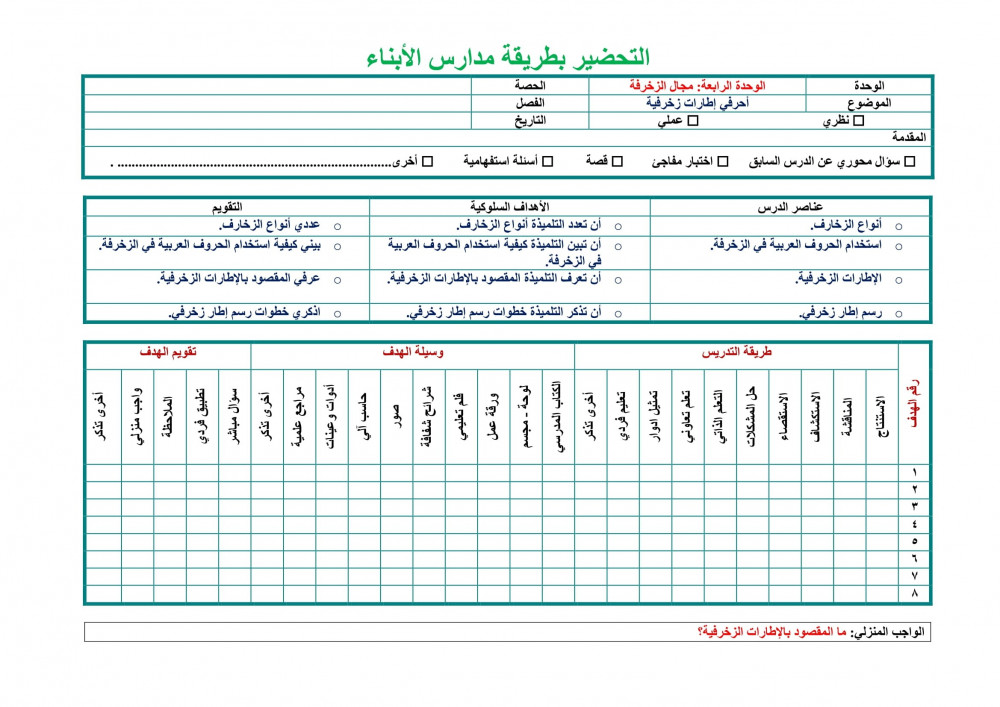 التحضير بطريقة مدارس الأبناء
الوحدة الوحدة الرابعة: مجال الزخرفة الحصة
الموضوع أحرفي إطارات زخرفية الفصل
□ نظري □ عملي التاريخ
المقدمة
□ سؤال محوري عن الدرس السابق □ اختبار مفاجئ □ قصة □ أسئلة استفهامية □ أخرى............................................................................ .
عناصر الدرس الأهداف السلوكية التقويم
○ أنواع الزخارف. ○ أن تعدد التلميذة أنواع الزخارف. ○ عددي أنواع الزخارف.
○ استخدام الحروف العربية في الزخرفة. ○ أن تبين التلميذة كيفية استخدام الحروف العربية ○ بيني كيفية استخدام الحروف العربية في الزخرفة.
في الزخرفة.
○ الإطارات الزخرفية. ○ أن تعرف التلميذة المقصود بالإطارات الزخرفية. ○ عرفي المقصود بالإطارات الزخرفية.
○ رسم إطار زخرفي. ○ أن تذكر التلميذة خطوات رسم إطار زخرفي. ○ اذكري خطوات رسم إطار زخرفي.
رقم الهدف طريقة التدريس وسيلة الهدف تقويم الهدف
الاستنتاج المناقشة الاستكشاف الاستقصاء حل المشكلات التعلم الذاتي تعلم تعاوني تمثيل ادوار تعليم فردي أخرى تذكر الكتاب المدرسي لوحة - مجسم ورقة عمل فلم تعليمي شرائح شفافة صور حاسب آلي أدوات وعينات مراجع علمية أخرى تذكر سؤال مباشر تطبيق فردي الملاحظة واجب منزلي أخرى تذكر
١
٢
٣
٤
٥
٦
٧
٨
الواجب المنزلي: ما المقصود بالإطارات الزخرفية؟